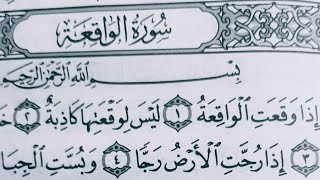 سُورَةُ الوَاقِعَةِ
بِسْمِ اللَّهِ الرَّحْمَٰنِ الرَّحِيمِ
إِذَا وَقَعَتِ الْوَاقِعَةُ ١ لَيْسَ لِوَقْعَتِهَا كَاذِبَةٌ ٢
٣ إِذَا رُجَّتِ الْأَرْضُ رَجًّا ٤ وَبُسَّتِ